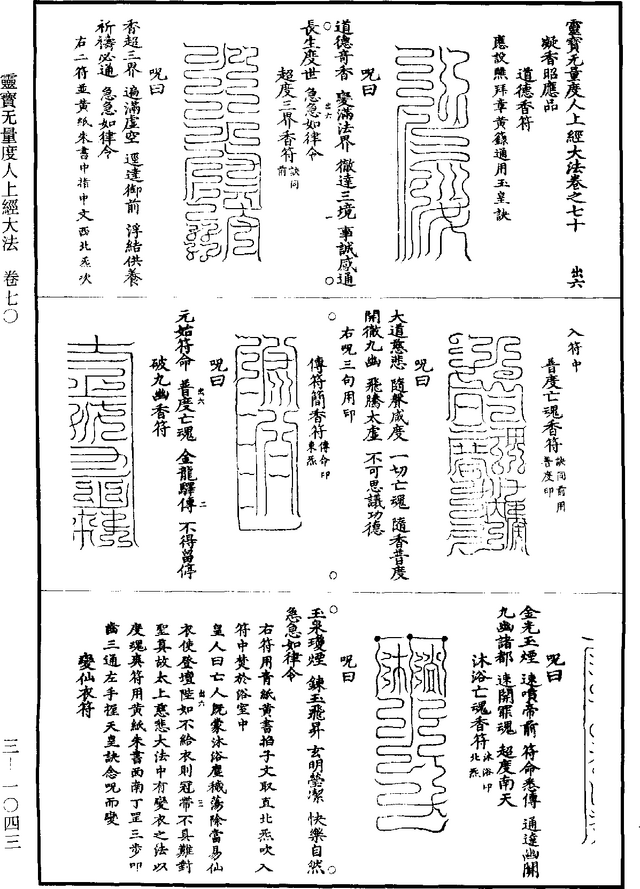 靈寶无量度人上經大法卷之七十 出六
凝香昭應品
道德香符
應設醮拜章黃籙通用玉皇訣
呪曰
道德奇香 變滿法界 徹達三境 事誠感通
長生度世 急急如律令
超度三界香符 訣同前
呪曰
香超三界 遍滿虛空 逕達御前 浮結供養
祈禱必通 急急如律令
右二符並黃紙朱書中指中文西北炁次
入符中
普度亡魂香符 訣同前用普度印
呪曰
大道慈悲 隨聲咸度 一切亡魂 隨香普度
開徹九幽 飛騰太虛 不可思議功德
右呪三句用印
傳符簡香符 傳令印東炁
呪曰
元始符命 普度亡魂 金龍驛傳 不得留停
破九幽香符
呪曰
金光玉煙 速噴帝前 符命悉傳 通達幽關
九幽諸都 速開罪魂 超度南天
沐浴亡魂香符 沐浴印北炁
呪曰
玉泉瓊煙 鍊玉飛昇 玄明瑩潔 快樂自然
急急如律令
右符用青紙黃書掐子文取直北炁吹入
符中焚於浴室中
皇人曰亡人既蒙沐浴塵穢蕩除當易仙
衣使登壇陛如不給衣則冠帶不具難對
聖真故太上慈悲大法中有變衣之法以
度魂爽符用黃紙朱書西南丁罡三步叩
齒三通左手掐天皇訣念呪而變
變仙衣符
靈寶无量度人上經大法 卷七〇
三—一〇四三